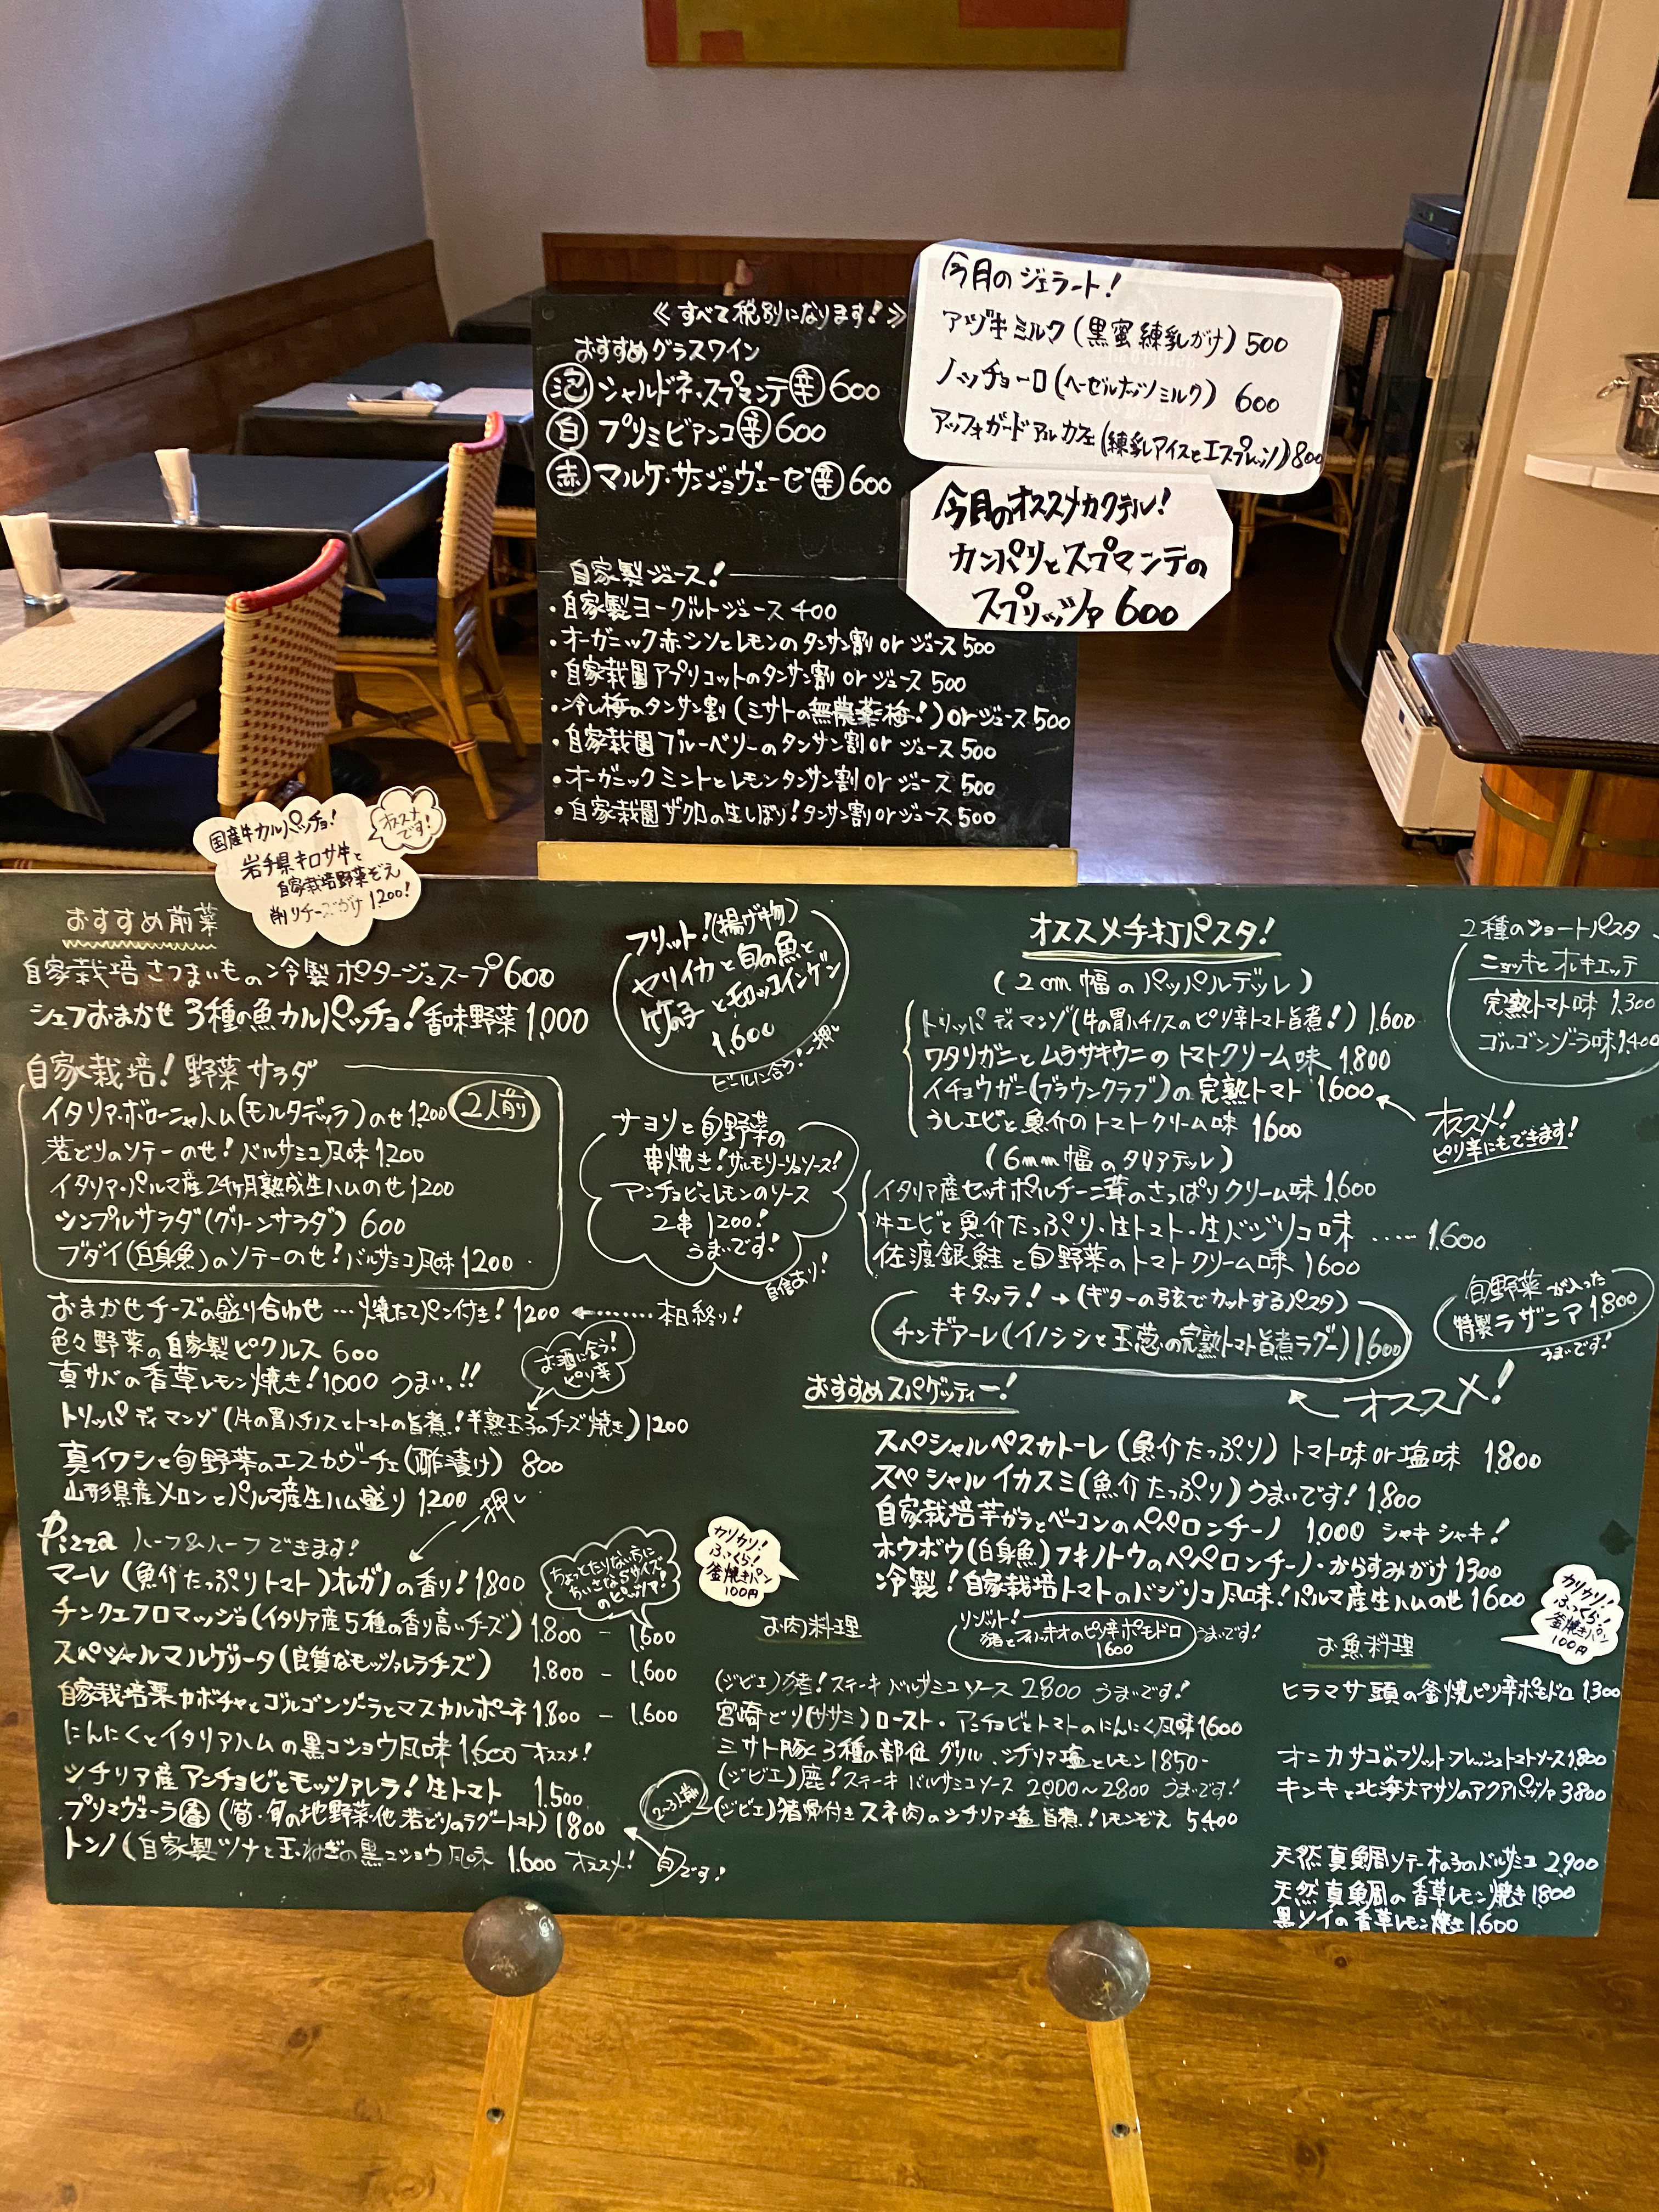 ≪すべて税別になります!≫
おすすめグラスワイン
泡 シャルドネ・スプマンテ 辛 600
白 プリミビアンコ 辛 600
赤 マルケ・サンジョヴェーゼ 辛 600
自家製ジュース!
・自家製ヨーグルトジュース 400
・オーガニック赤シソとレモンのタンサン割 or ジュース 500
・自家栽園アプリコットのタンサン割 or ジュース 500
・冷し梅のタンサン割(ミサトの無農薬梅!)or ジュース 500
・自家栽園ブルーベリーのタンサン割 or ジュース 500
・オーガニックミントとレモンタンサン割 or ジュース 500
・自家栽園ザクロの生しぼり!タンサン割 or ジュース 500
今月のジェラート!
アヅキミルク(黒蜜練乳がけ)500
ノッチョーロ(ヘーゼルナッツミルク) 600
アッフォガード アル カフェ(練乳アイスとエスプレッソ)800
今月のオススメカクテル!
カンパリとスプマンテの
スプリッツァ 600
国産牛カルパッチョ!
オススメです!
岩手県キロサ牛と
自家栽培野菜ぞえ
削りチーズがけ 1200!
おすすめ前菜
自家栽培さつまいもの冷製ポタージュスープ 600
シェフおまかせ 3種の魚カルパッチョ!香味野菜 1,000
自家栽培!野菜サラダ
イタリア・ボローニャハム(モルタデッラ)のせ 1,200 2人前
若どりのソテーのせ!バルサミコ風味 1200
イタリア・パルマ産24ヶ月熟成生ハムのせ 1200
シンプルサラダ(グリーンサラダ) 600
ブダイ(白身魚)のソテーのせ!バルサミコ風味 1200
おまかせチーズの盛り合わせ…焼たてパン付き! 1200 ←……相終り!
色々野菜の自家製ピクルス 600
真サバの香草レモン焼き!1000 うまいっ!!
お酒に合う!
ピリ辛
トリッパ ディ マンゾ(牛の胃ハチノスとトマトの旨煮!半熟玉子のチーズ焼き)1200
真イワシと旬野菜のエスカヴーチェ(酢漬け) 800
山形県産メロンとパルマ産生ハム盛り 1200
一押し
フリット!(揚げ物)
ヤリイカと旬の魚と
竹の子とモロッコインゲン
1.600
ビールに合う!一押し
サヨリと旬野菜の
串焼き!サルモリーリョソース!
アンチョビとレモンのソース
2串 1200!
うまいです!
自信あり!
Pizza ハーフ&ハーフできます!
マーレ(魚介たっぷりトマト)オレガノの香り!1.800
チンクエフロマッジョ(イタリア産5種の香り高いチーズ) 1.800 - 1.600
スペシャルマルゲリータ(良質なモッツァレラチーズ) 1.800 - 1.600
自家栽培栗カボチャとゴルゴンゾーラとマスカルポーネ 1.800 - 1.600
にんにくとイタリアハムの黒コショウ風味 1.600 オススメ!
シチリア産アンチョビとモッツァレラ!生トマト 1.500
プリマヴェーラ 春 (筍・旬の地野菜・他 若どりのラグートマト) 1800
トンノ(自家製ツナと玉ねぎの黒コショウ風味 1.600 オススメ!
旬です!
ちょっとたりない方に
ちいさなSサイズ
のピッツァ!
カリカリ!
ふっくら!
釜焼きパン
100円
オススメ手打パスタ!
(2cm幅のパッパルデッレ)
トリッパ ディ マンゾ(牛の胃ハチノスのピリ辛トマト旨煮!) 1.600
ワタリガニとムラサキウニのトマトクリーム味 1.800
イチョウガニ(ブラウンクラブ)の完熟トマト 1.600
うしエビと魚介のトマトクリーム味 1600
オススメ!
ピリ辛にもできます!
(6mm幅のタリアテッレ)
イタリア産セッキポルチーニ茸のさっぱりクリーム味 1.600
牛エビと魚介たっぷり・生トマト・生バジリコ味 …… 1.600
佐渡銀鮭と旬野菜のトマトクリーム味 1600
キタッラ!→(ギターの弦でカットするパスタ)
チンギアーレ(イノシシと玉葱の完熟トマト旨煮ラグー)1600
オススメ!
2種のショートパスタ
ニョッキとオレキエッテ
完熟トマト味 1.300
ゴルゴンゾーラ味 1.400
旬野菜が入った
特製ラザニア 1.800
うまいです!
おすすめスパゲッティー!
スペシャルペスカトーレ(魚介たっぷり)トマト味 or 塩味 1.800
スペシャルイカスミ(魚介たっぷり)うまいです! 1.800
自家栽培芋ガラとベーコンのペペロンチーノ 1.000 シャキシャキ!
ホウボウ(白身魚)フキノトウのペペロンチーノ・からすみがけ 1300
冷製!自家栽培トマトのバジリコ風味!パルマ産生ハムのせ 1600
リゾット!
猪とフィノッキオのピリ辛ポモドロ
1600
うまいです!
お肉料理
(ジビエ)猪!ステーキ バルサミコソース 2800 うまいです!
宮崎どり(ササミ)ロースト・アンチョビとトマトのにんにく風味 1600
ミサト豚と3種の部位グリル シチリア塩とレモン 1850-
(ジビエ)鹿!ステーキ バルサミコソース 2000〜2800 うまいです!
2〜3人前
(ジビエ)猪骨付きスネ肉のシチリア塩旨煮!レモンぞえ 5400
お魚料理
カリカリ!
ふっくら!
釜焼きパン
100円
ヒラマサ頭の釜焼ピリ辛ポモドロ 1300
オニカサゴのフリット フレッシュトマトソース 1,800
キンキと北海大アサリのアクアパッツァ 3800
天然真鯛ソテー木の子のバルサミコ 2,900
天然真鯛の香草レモン焼き 1800
黒ソイの香草レモン焼き 1.600